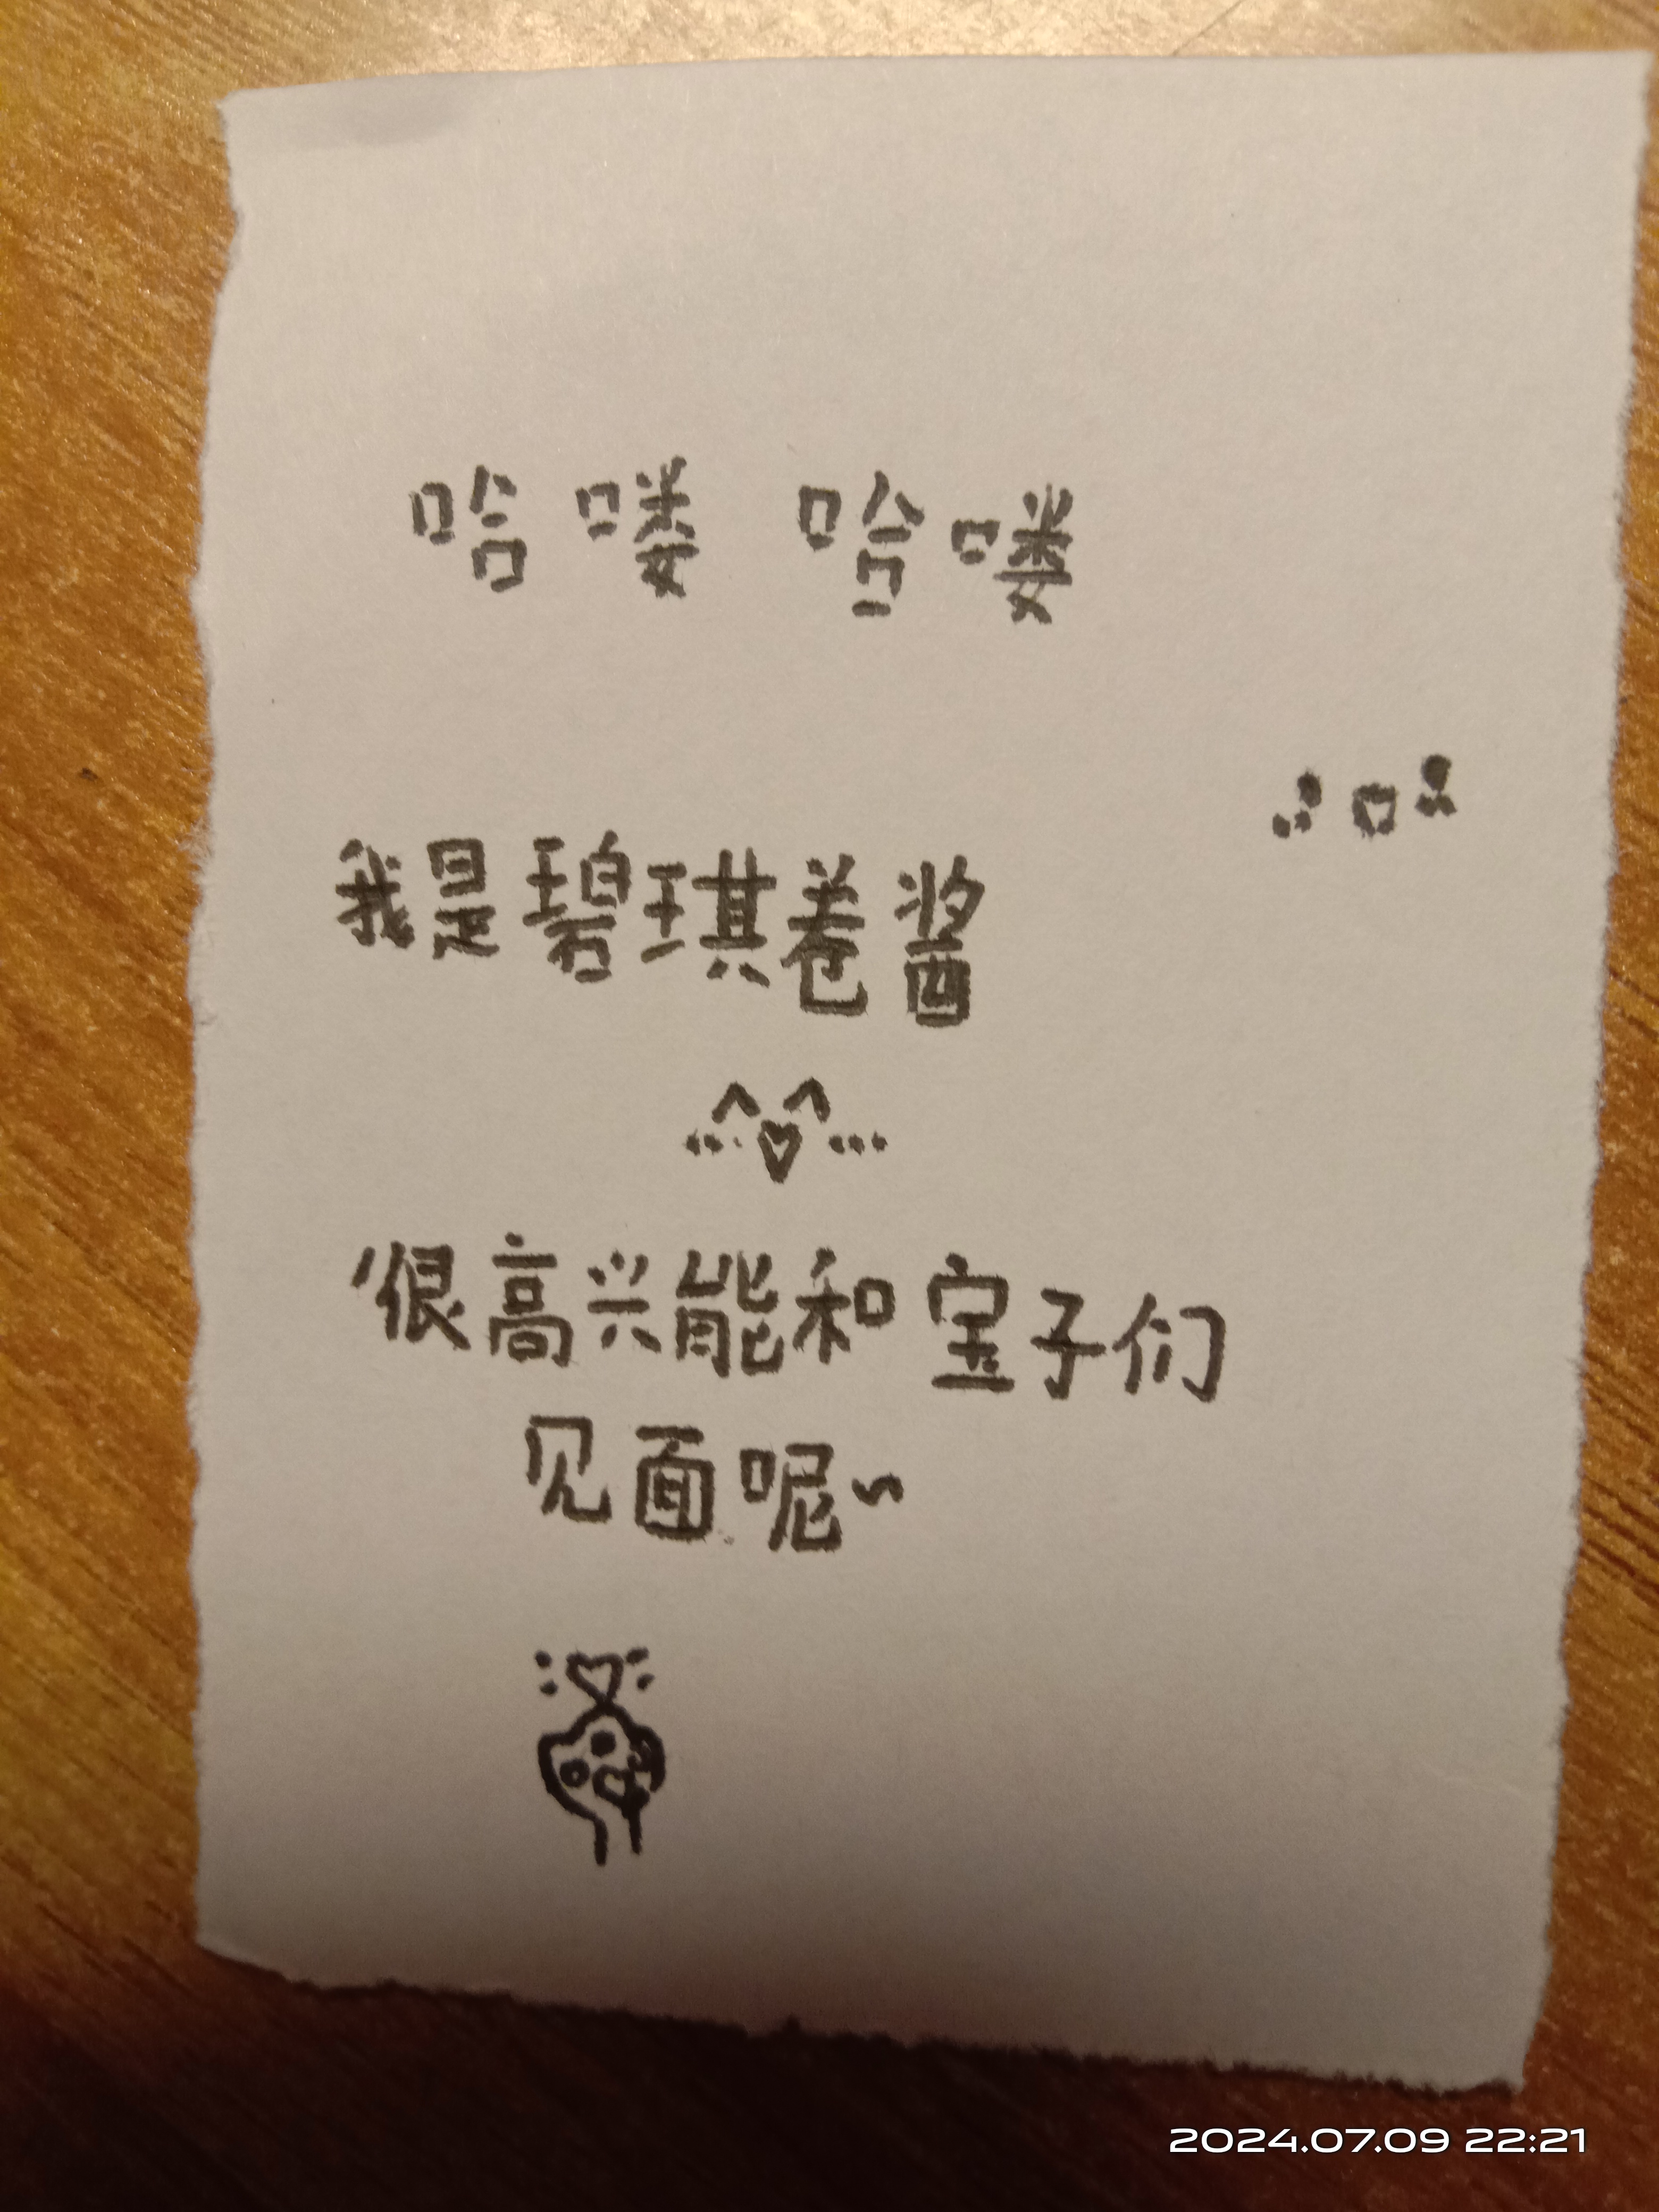 哈喽 哈喽
我是碧琪卷酱
很高兴能和宝子们
见面呢~
2024.07.09 22:21